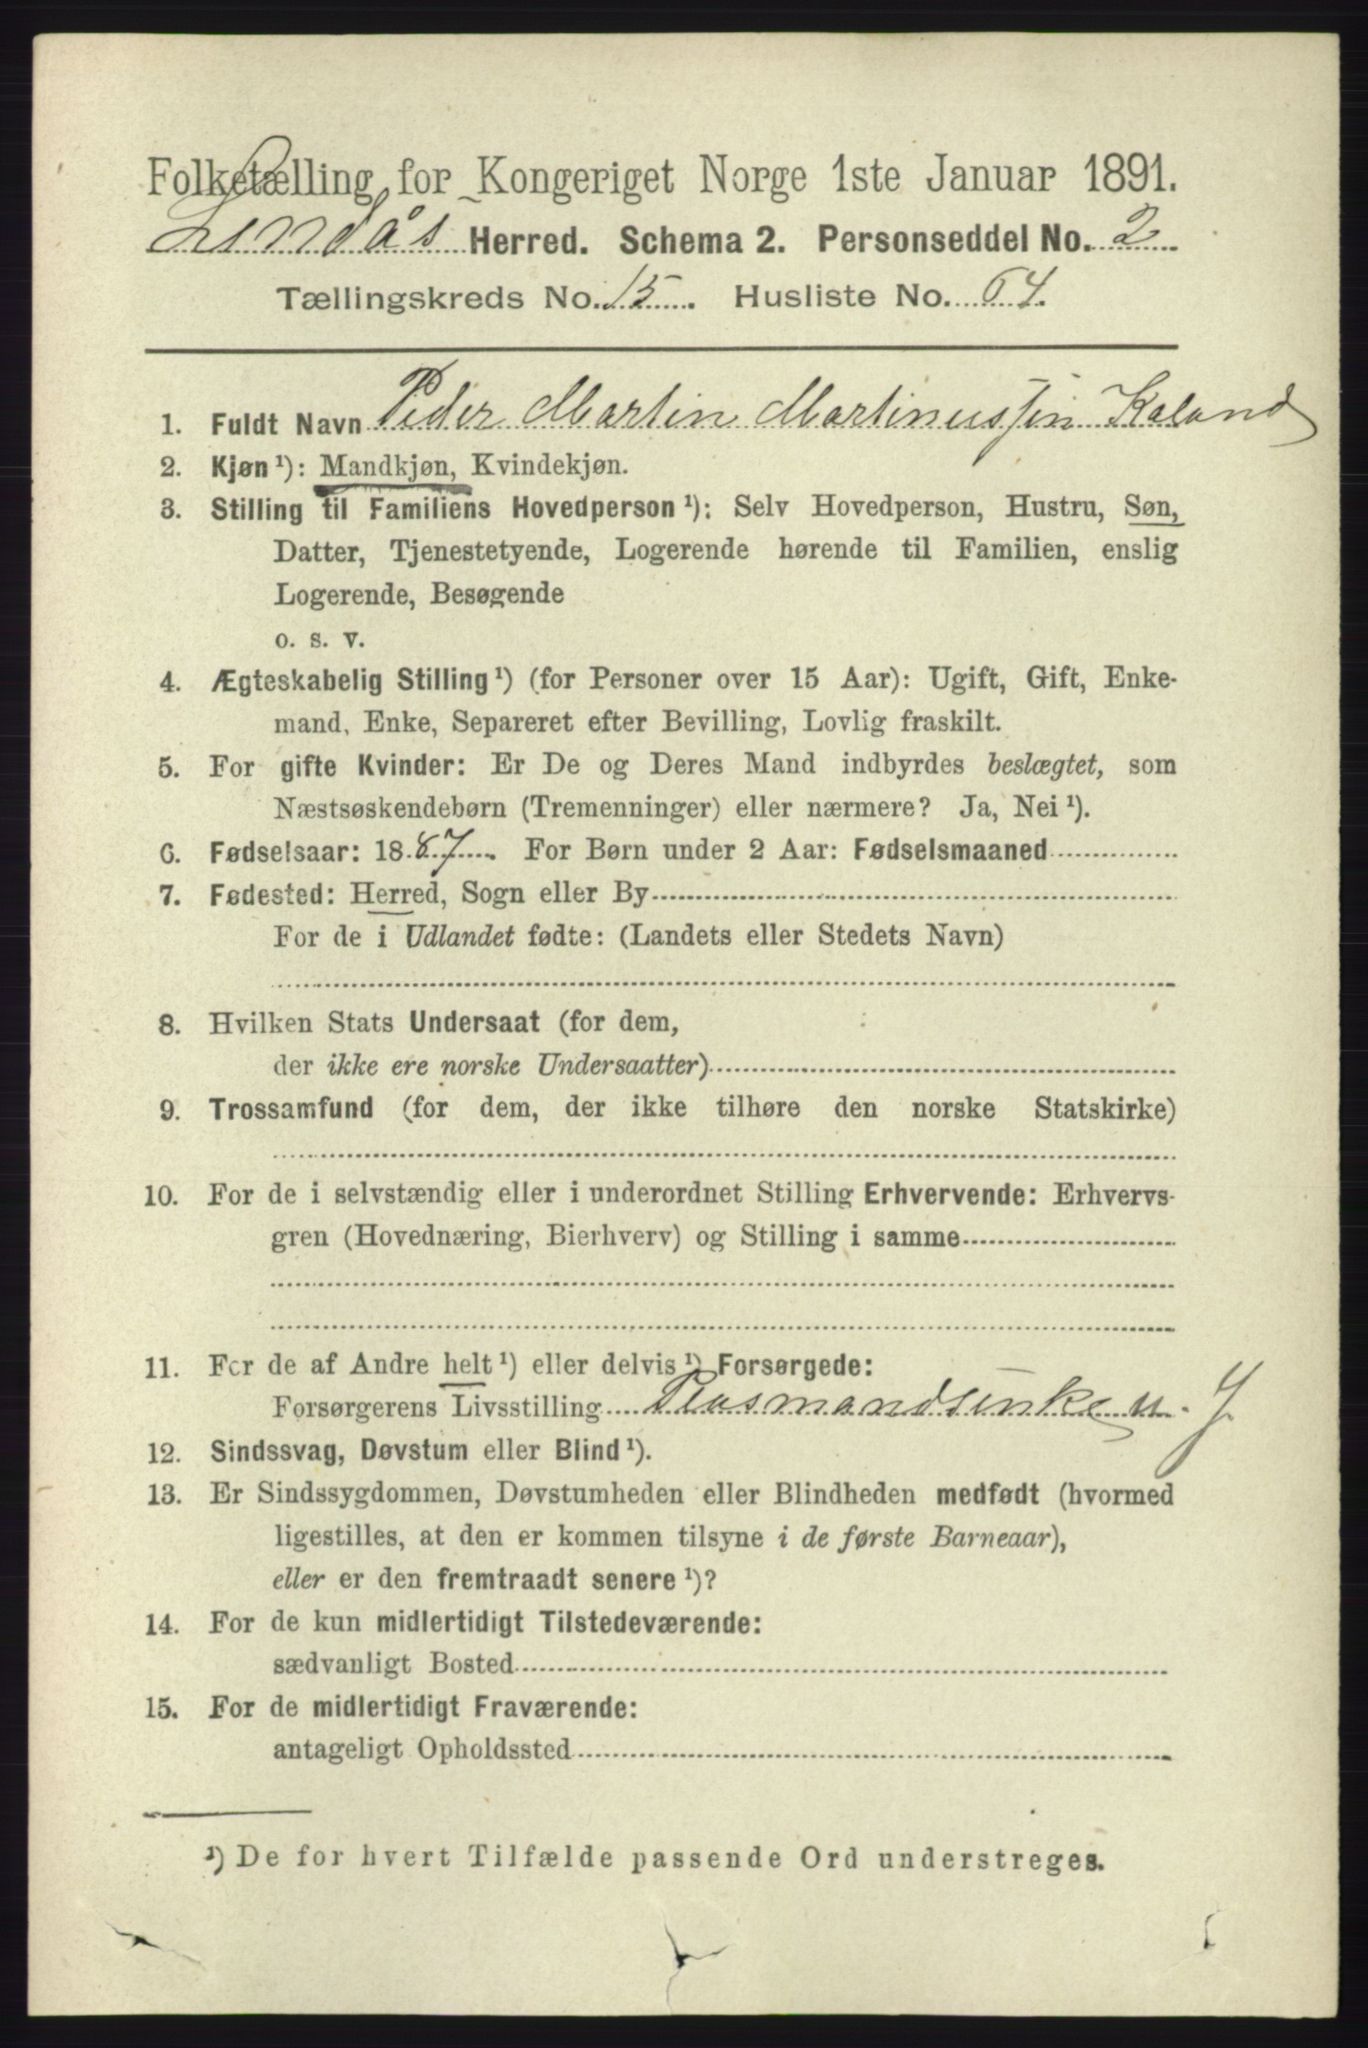 Folketælling for Kongeriget Norge 1ste Januar 1891.
Lindås Herred. Schema 2. Personseddel No. 2
Tællingskreds No. 15. Husliste No. 64.
1. Fuldt Navn Peder Martin Martinussen Kaland
2. Kjøn ¹): Mandkjøn, Kvindekjøn.
3. Stilling til Familiens Hovedperson ¹): Selv Hovedperson, Hustru, Søn,
Datter, Tjenestetyende, Logerende hørende til Familien, enslig
Logerende, Besøgende
o. s. v.
4. Ægteskabelig Stilling ¹) (for Personer over 15 Aar): Ugift, Gift, Enke-
mand, Enke, Separeret efter Bevilling, Lovlig fraskilt.
5. For gifte Kvinder: Er De og Deres Mand indbyrdes beslægtet, som
Næstsøskendebørn (Tremenninger) eller nærmere? Ja, Nei ¹).
6. Fødselsaar: 1887. For Børn under 2 Aar: Fødselsmaaned
7. Fødested: Herred, Sogn eller By
For de i Udlandet fødte: (Landets eller Stedets Navn)
8. Hvilken Stats Undersaat (for dem,
der ikke ere norske Undersaatter)
9. Trossamfund (for dem, der ikke tilhøre den norske Statskirke)
10. For de i selvstændig eller i underordnet Stilling Erhvervende: Erhvervs-
gren (Hovednæring, Bierhverv) og Stilling i samme
11. For de af Andre helt ¹) eller delvis ¹) Forsørgede:
Forsørgerens Livsstilling
12. Sindssvag, Døvstum eller Blind ¹).
13. Er Sindssygdommen, Døvstumheden eller Blindheden medfødt (hvormed
ligestilles, at den er kommen tilsyne i de første Barneaar),
eller er den fremtraadt senere ¹)?
14. For de kun midlertidigt Tilstedeværende:
sædvanligt Bosted
15. For de midlertidigt Fraværende:
antageligt Opholdssted
¹) De for hvert Tilfælde passende Ord understreges.